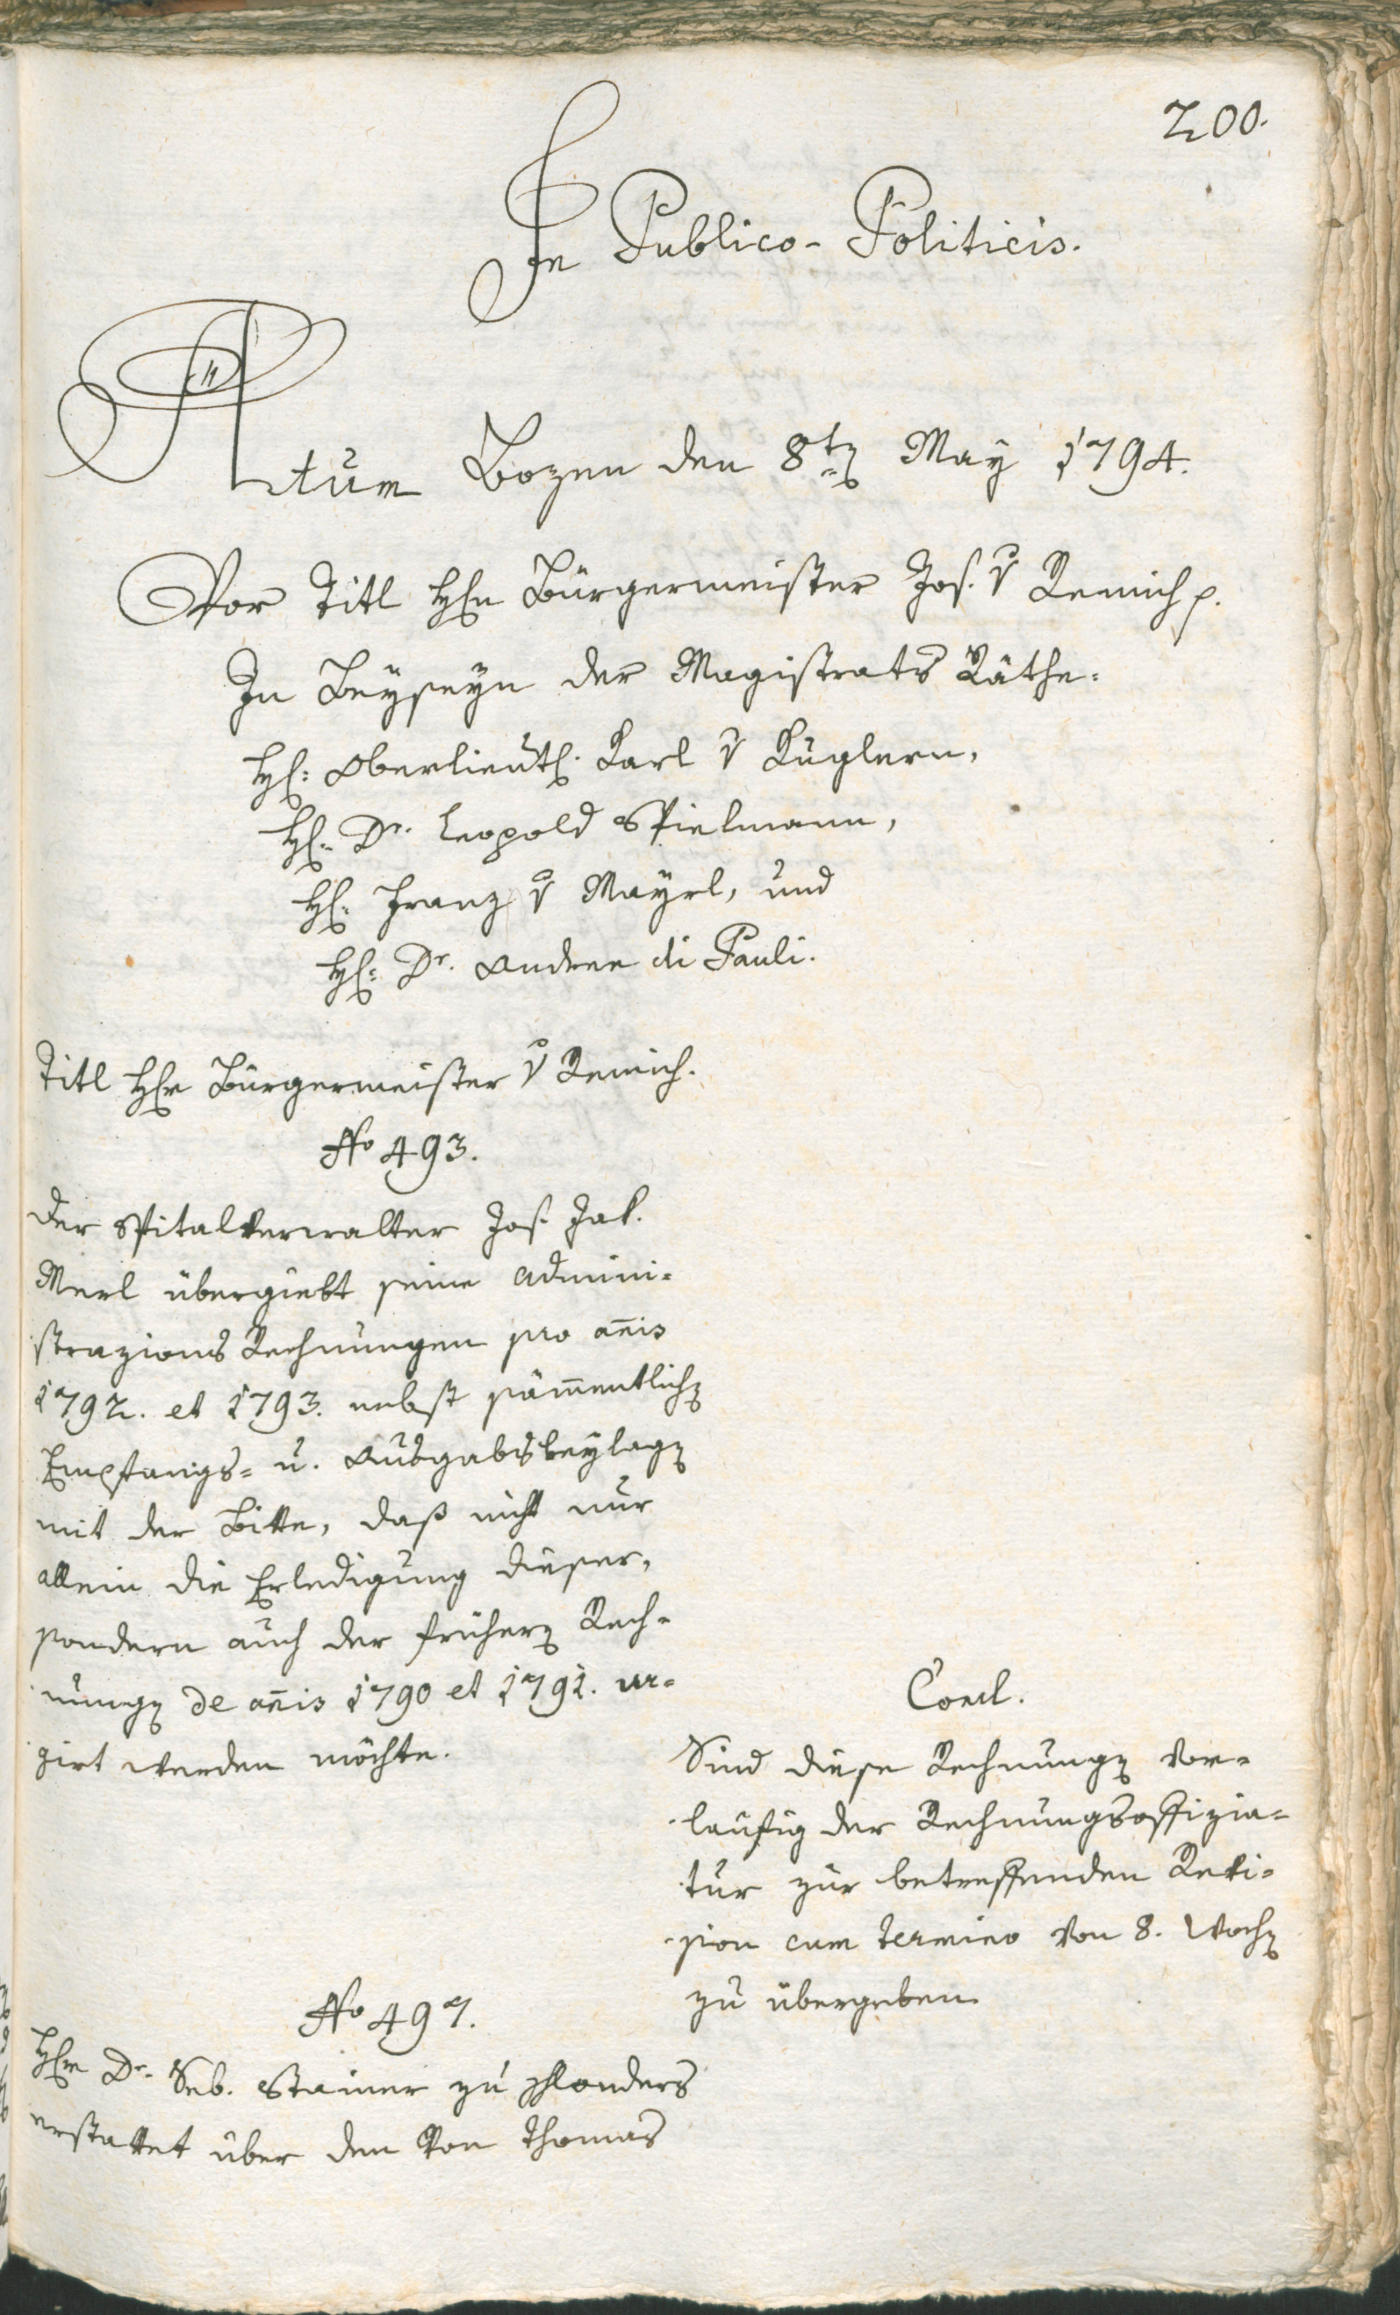 200.
In Publico-Politicis.
Actum Bozen den 8ten May 1794.
Vor Titl Hrn Bürgermeister Jos. v Remich p.
In Beyseyn der Magistrats Räthe.
Hr: Oberlieut. Karl v Kuglern,
Hr: Dr. Leopold Spielmann,
Hr: Franz v Mayrl, und
Hr: Dr. Andree di Pauli.
Titl Hr Bürgermeister v Remich.
No 493.
Der Spitalverwalter Jos. Jak.
Merl übergiebt seine Admini-
strazions Rechnungen pro añis
1792. et 1793. nebst säm̄entlichen
Empfangs- u. Ausgabsbeylagen
mit der Bitte, daß nicht nur
allein die Erledigung dieser,
sondern auch der früheren Rech-
nungen de añis 1790 et 1791. ur-
girt werden möchte.
Concl.
Sind diese Rechnungen vor-
laufig der Rechnungsoffizia-
tur zur betreffenden Revi-
sion cum termino von 8. Wochen
zu übergeben
No 497.
Hr Dr. Seb. Stainer zu Schlanders
erstattet über den von Thomas